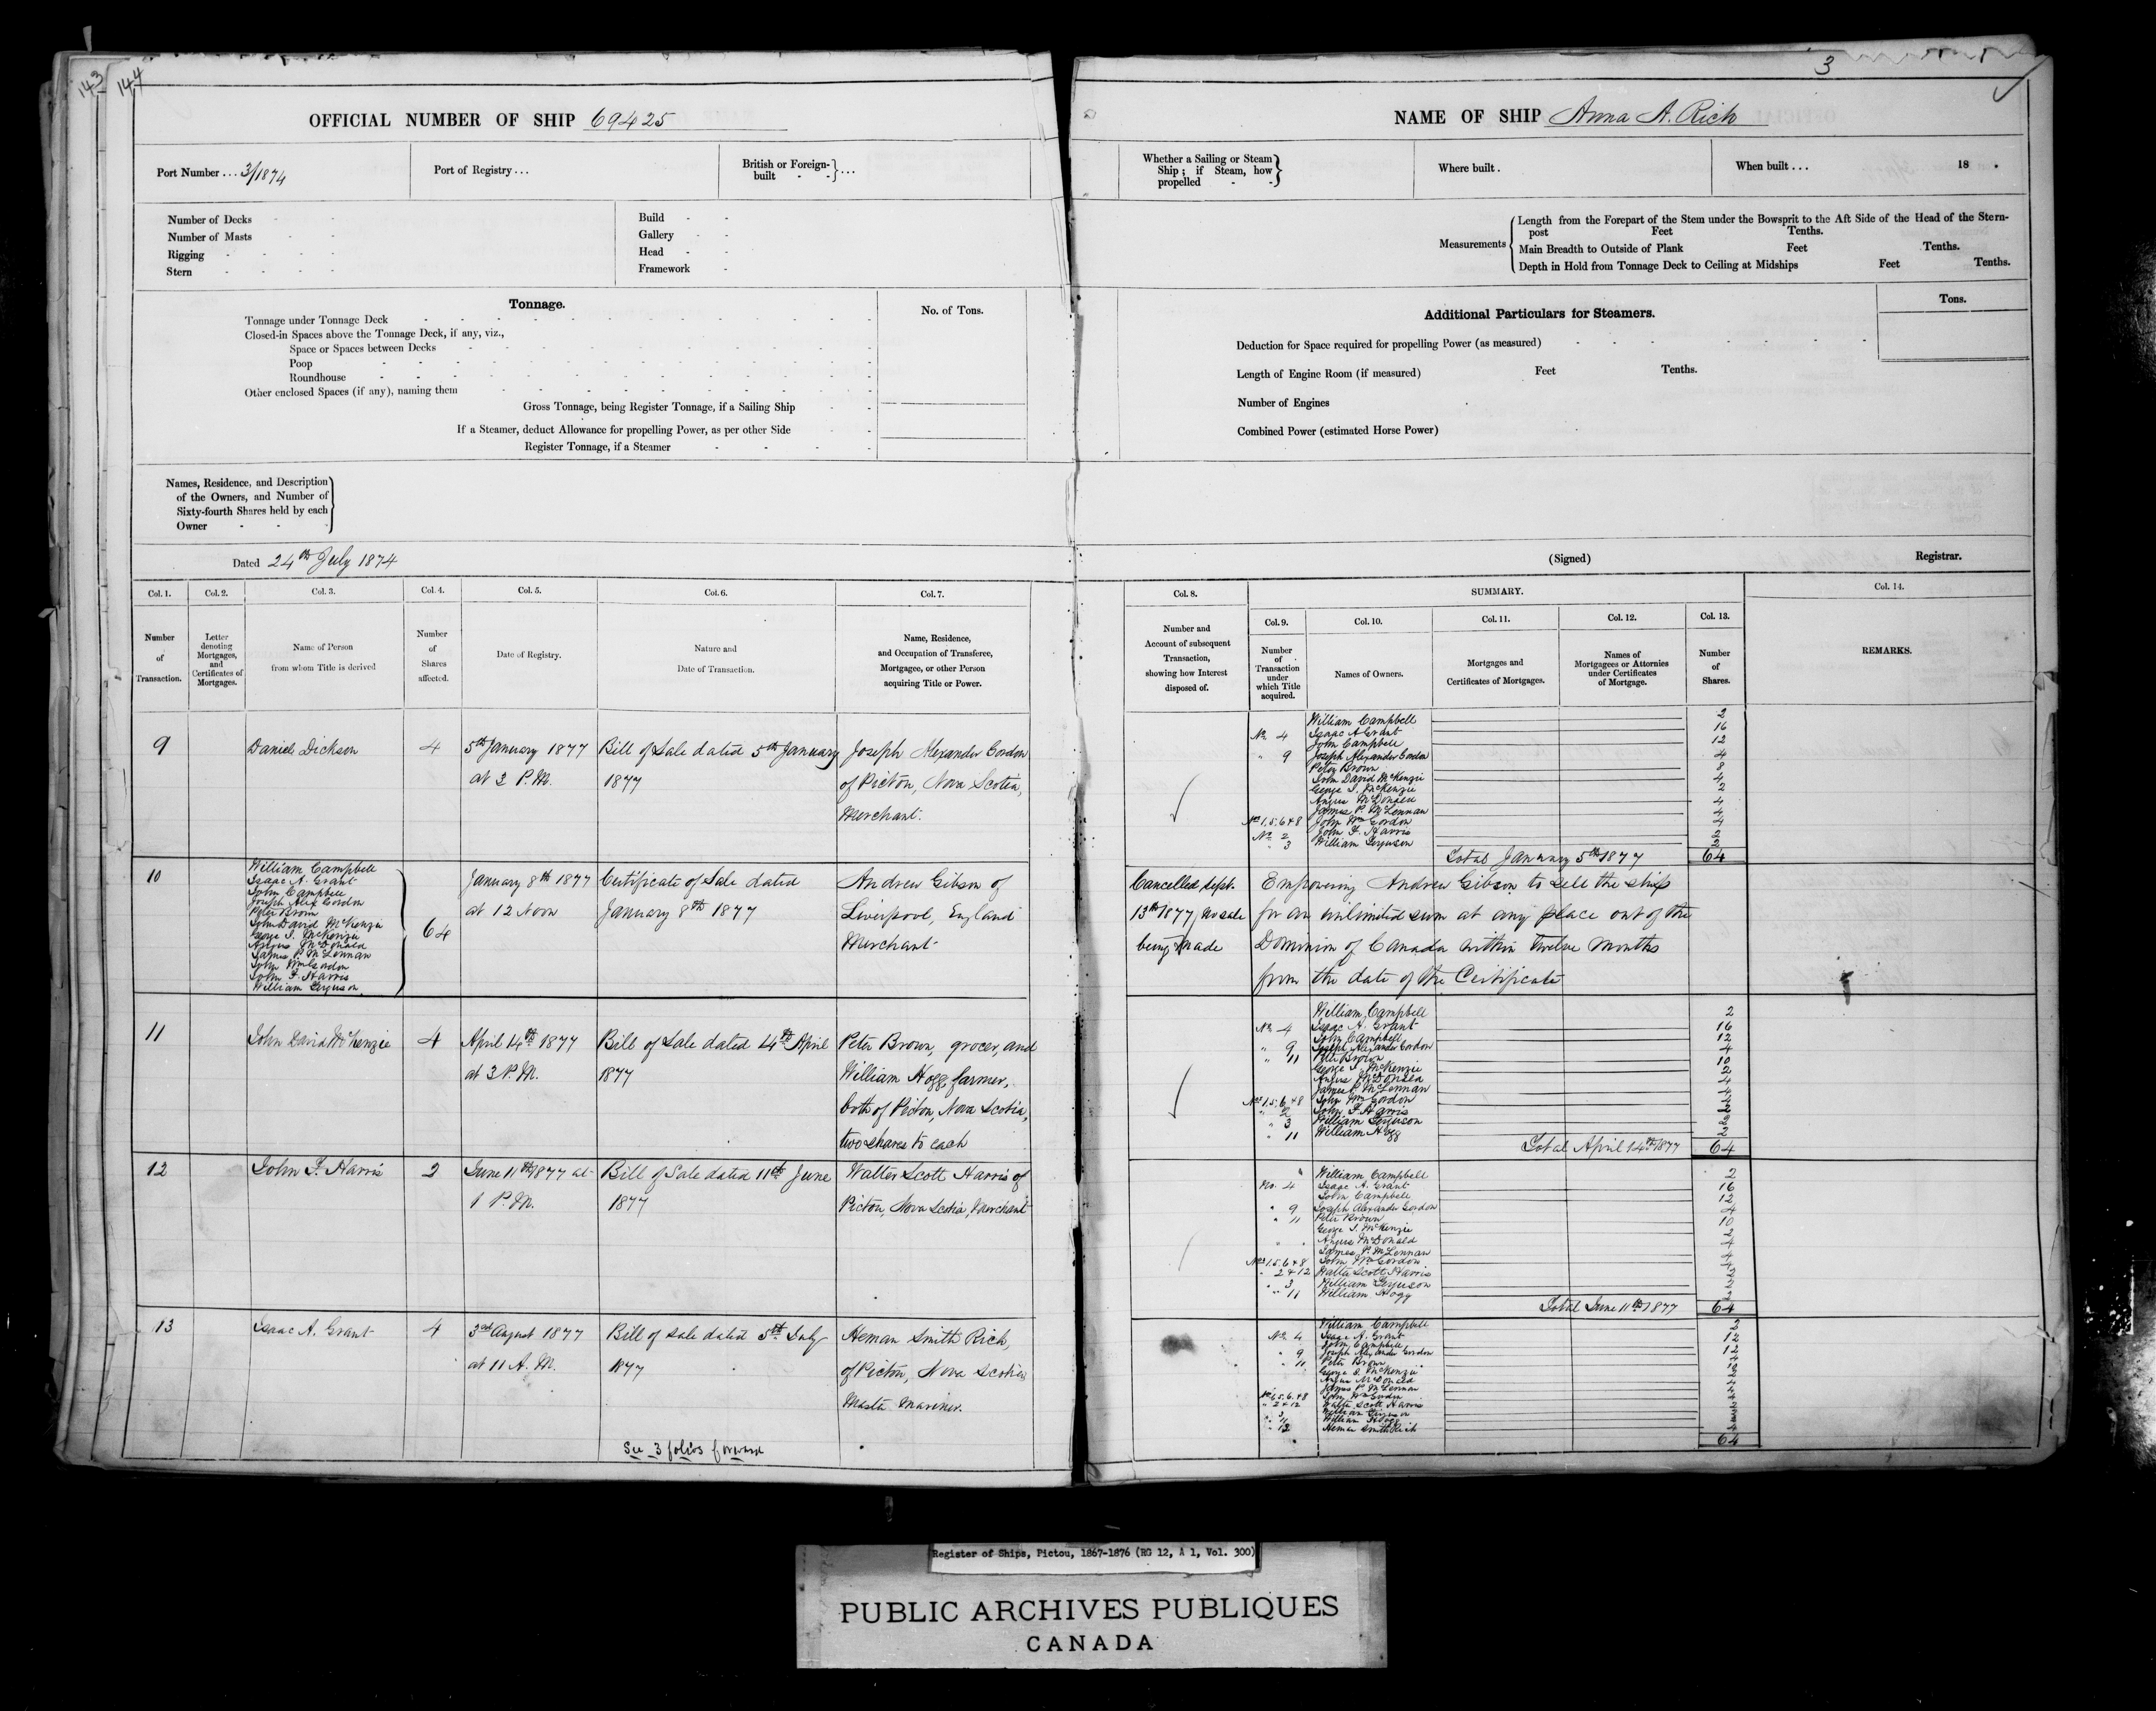 143 144
3
OFFICIAL NUMBER OF SHIP 69425
Port Number ... 3/1874
Port of Registry ...
British or Foreign-built - - } ...
Number of Decks - -
Number of Masts - -
Rigging - - - -
Stern - - - -
Build - -
Gallery - -
Head - -
Framework -
Tonnage.
No. of Tons.
Tonnage under Tonnage Deck
Closed-in Spaces above the Tonnage Deck, if any, viz.,
Space or Spaces between Decks
Poop
Roundhouse
Other enclosed Spaces (if any), naming them
Gross Tonnage, being Register Tonnage, if a Sailing Ship
If a Steamer, deduct Allowance for propelling Power, as per other Side
Register Tonnage, if a Steamer
Names, Residence, and Description
of the Owners, and Number of
Sixty-fourth Shares held by each
Owner - -
Dated 24th July 1874
NAME OF SHIP Anna A. Rich
Whether a Sailing or Steam
Ship; if Steam, how
propelled - -
Where built .
When built ... 18 .
Measurements
Length from the Forepart of the Stem under the Bowsprit to the Aft Side of the Head of the Stern-
post Feet Tenths.
Main Breadth to Outside of Plank Feet Tenths.
Depth in Hold from Tonnage Deck to Ceiling at Midships Feet Tenths.
Additional Particulars for Steamers.
Tons.
Deduction for Space required for propelling Power (as measured)
Length of Engine Room (if measured) Feet Tenths.
Number of Engines
Combined Power (estimated Horse Power)
(Signed) Registrar.
Col. 1. Col. 2. Col. 3. Col. 4. Col. 5. Col. 6. Col. 7.
Number of Transaction.
Letter denoting Mortgages, and Certificates of Mortgages.
Name of Person from whom Title is derived
Number of Shares affected.
Date of Registry.
Nature and Date of Transaction.
Name, Residence, and Occupation of Transferee, Mortgagee, or other Person acquiring Title or Power.
Col. 8. SUMMARY. Col. 14.
Col. 9. Col. 10. Col. 11. Col. 12. Col. 13.
Number and Account of subsequent Transaction, showing how Interest disposed of.
Number of Transaction under which Title acquired.
Names of Owners.
Mortgages and Certificates of Mortgages.
Names of Mortgagees or Attornies under Certificates of Mortgage.
Number of Shares.
REMARKS.
9 Daniel Dickson 4 5th January 1877 Bill of Sale dated 5th January Joseph Alexander Gordon
at 3 P.M. 1877 of Pictou, Nova Scotia,
Merchant.
William Campbell 2
No. 4 Isaac A Grant 16
John Campbell 12
" 9 Joseph Alexander Gordon 4
Peter Brown 8
John David McKenzie 4
George I. McKenzie 2
Angus McDonald 4
James P. McLennan 4
Nos 1.5.6 & 8 John Wm Gordon
No. 2 John F. Harris 2
" 3 William Ferguson 2
Total January 5th 1877 64
10 William Campbell
Isaac A. Grant
John Campbell
Joseph Alex Gordon
Peter Brown
John David McKenzie
George I. McKenzie
Angus McDonald
James P. McLennan
John Wm Gordon
John F. Harris
William Ferguson
64
January 8th 1877 Certificate of Sale dated Andrew Gibson of
at 12 Noon January 8th 1877 Liverpool, England
Merchant
Cancelled Sept. Empowering Andrew Gibson to sell the ship
13th 1877, no sale for an unlimited sum at any place out of the
being made Dominion of Canada within twelve months
from the date of the Certificate
11 John David McKenzie 4 April 14th 1877 Bill of Sale dated 14th April Peter Brown, grocer, and
at 3 P.M. 1877 William Hogg, farmer,
both of Pictou, Nova Scotia,
two shares to each
William Campbell 2
No. 4 Isaac A. Grant 16
John Campbell 12
" 9 Joseph Alexander Gordon 4
" 11 Peter Brown 10
George I. McKenzie 2
Angus McDonald 4
James P. McLennan 4
Nos 1.5.6 & 8 John Wm Gordon
" 2 John F Harris 2
" 3 William Ferguson 2
" 11 William Hogg 2
Total April 14th 1877 64
12 John F. Harris 2 June 11th 1877 at Bill of Sale dated 11th June Walter Scott Harris of
1 P.M. 1877 Pictou, Nova Scotia, Merchant
" William Campbell 2
No. 4 Isaac A. Grant 16
John Campbell 12
" 9 Joseph Alexander Gordon 4
" 11 Peter Brown 10
George I. McKenzie 2
" " Angus McDonald 4
James P. McLennan 4
Nos 1.5.6 & 8 John Wm Gordon
" 2 & 12 Walter Scott Harris 2
" 3 William Ferguson 2
" 11 William Hogg 2
Total June 11th 1877 64
13 Isaac A. Grant 4 3rd August 1877 Bill of sale dated 5th July Heman Smith Rich,
at 11 A.M. 1877 of Pictou, Nova Scotia
Master Mariner.
William Campbell 2
No. 4 Isaac A. Grant 12
John Campbell 12
" 9 Joseph Alexander Gordon
" 11 Peter Brown
George I. McKenzie
Angus McDonald
James P. McLennan
John Wm Gordon
" 2 & 12 Walter Scott Harris
William Ferguson
" 11 William Hogg
" 13 Heman Smith Rich
64
See 3 folios forward
Register of Ships, Pictou, 1867-1876 (RG 12, A 1, Vol. 300)
PUBLIC ARCHIVES PUBLIQUES
CANADA